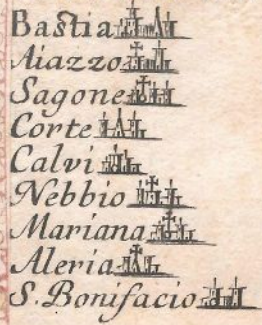 Baſtia
Aiazzo
Sagone
Corte
Calvi
Nebbio
Mariana
Aleria
S. Bonifacio